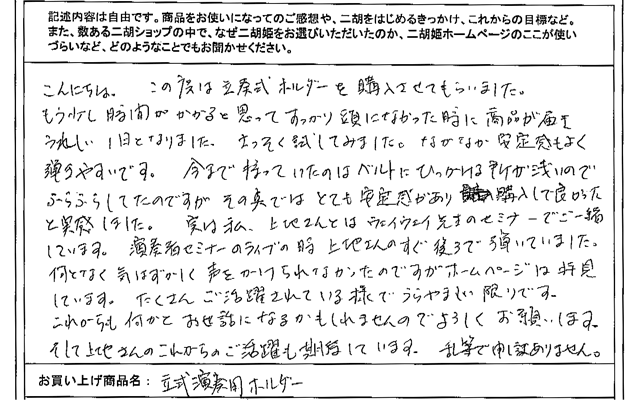 記述内容は自由です。商品をお使いになってのご感想や、二胡をはじめるきっかけ、これからの目標など。
また、数ある二胡ショップの中で、なぜ二胡姫をお選びいただいたのか、二胡姫ホームページのここが使い
づらいなど、どのようなことでもお聞かせください。
こんにちは。 この度は立奏式ホルダーを購入させてもらいました。
もう少し時間がかかると思ってすっかり頭になかった時に商品が届き
うれしい1日となりました。さっそく試してみました。なかなか安定感もよく
弾きやすいです。 今まで持っていたのはベルトにひっかける所が浅いので
ぶらぶらしてたのですがその点ではとても安定感があり購入して良かった
と実感しました。 実は私、上地さんとはウェイウェイ先生のセミナーでご一緒
しています。 演奏者セミナーのライブの時上地さんのすぐ後ろで弾いていました。
何となく気はずかしく声をかけられなかったのですがホームページは拝見
しています。 たくさんご活躍されている様でうらやましい限りです。
これからも何かとお世話になるかもしれませんのでよろしくお願いします。
そして上地さんのこれからのご活躍も期待しています。 乱筆で申し訳ありません。
お買い上げ商品名： 立式演奏用ホルダー